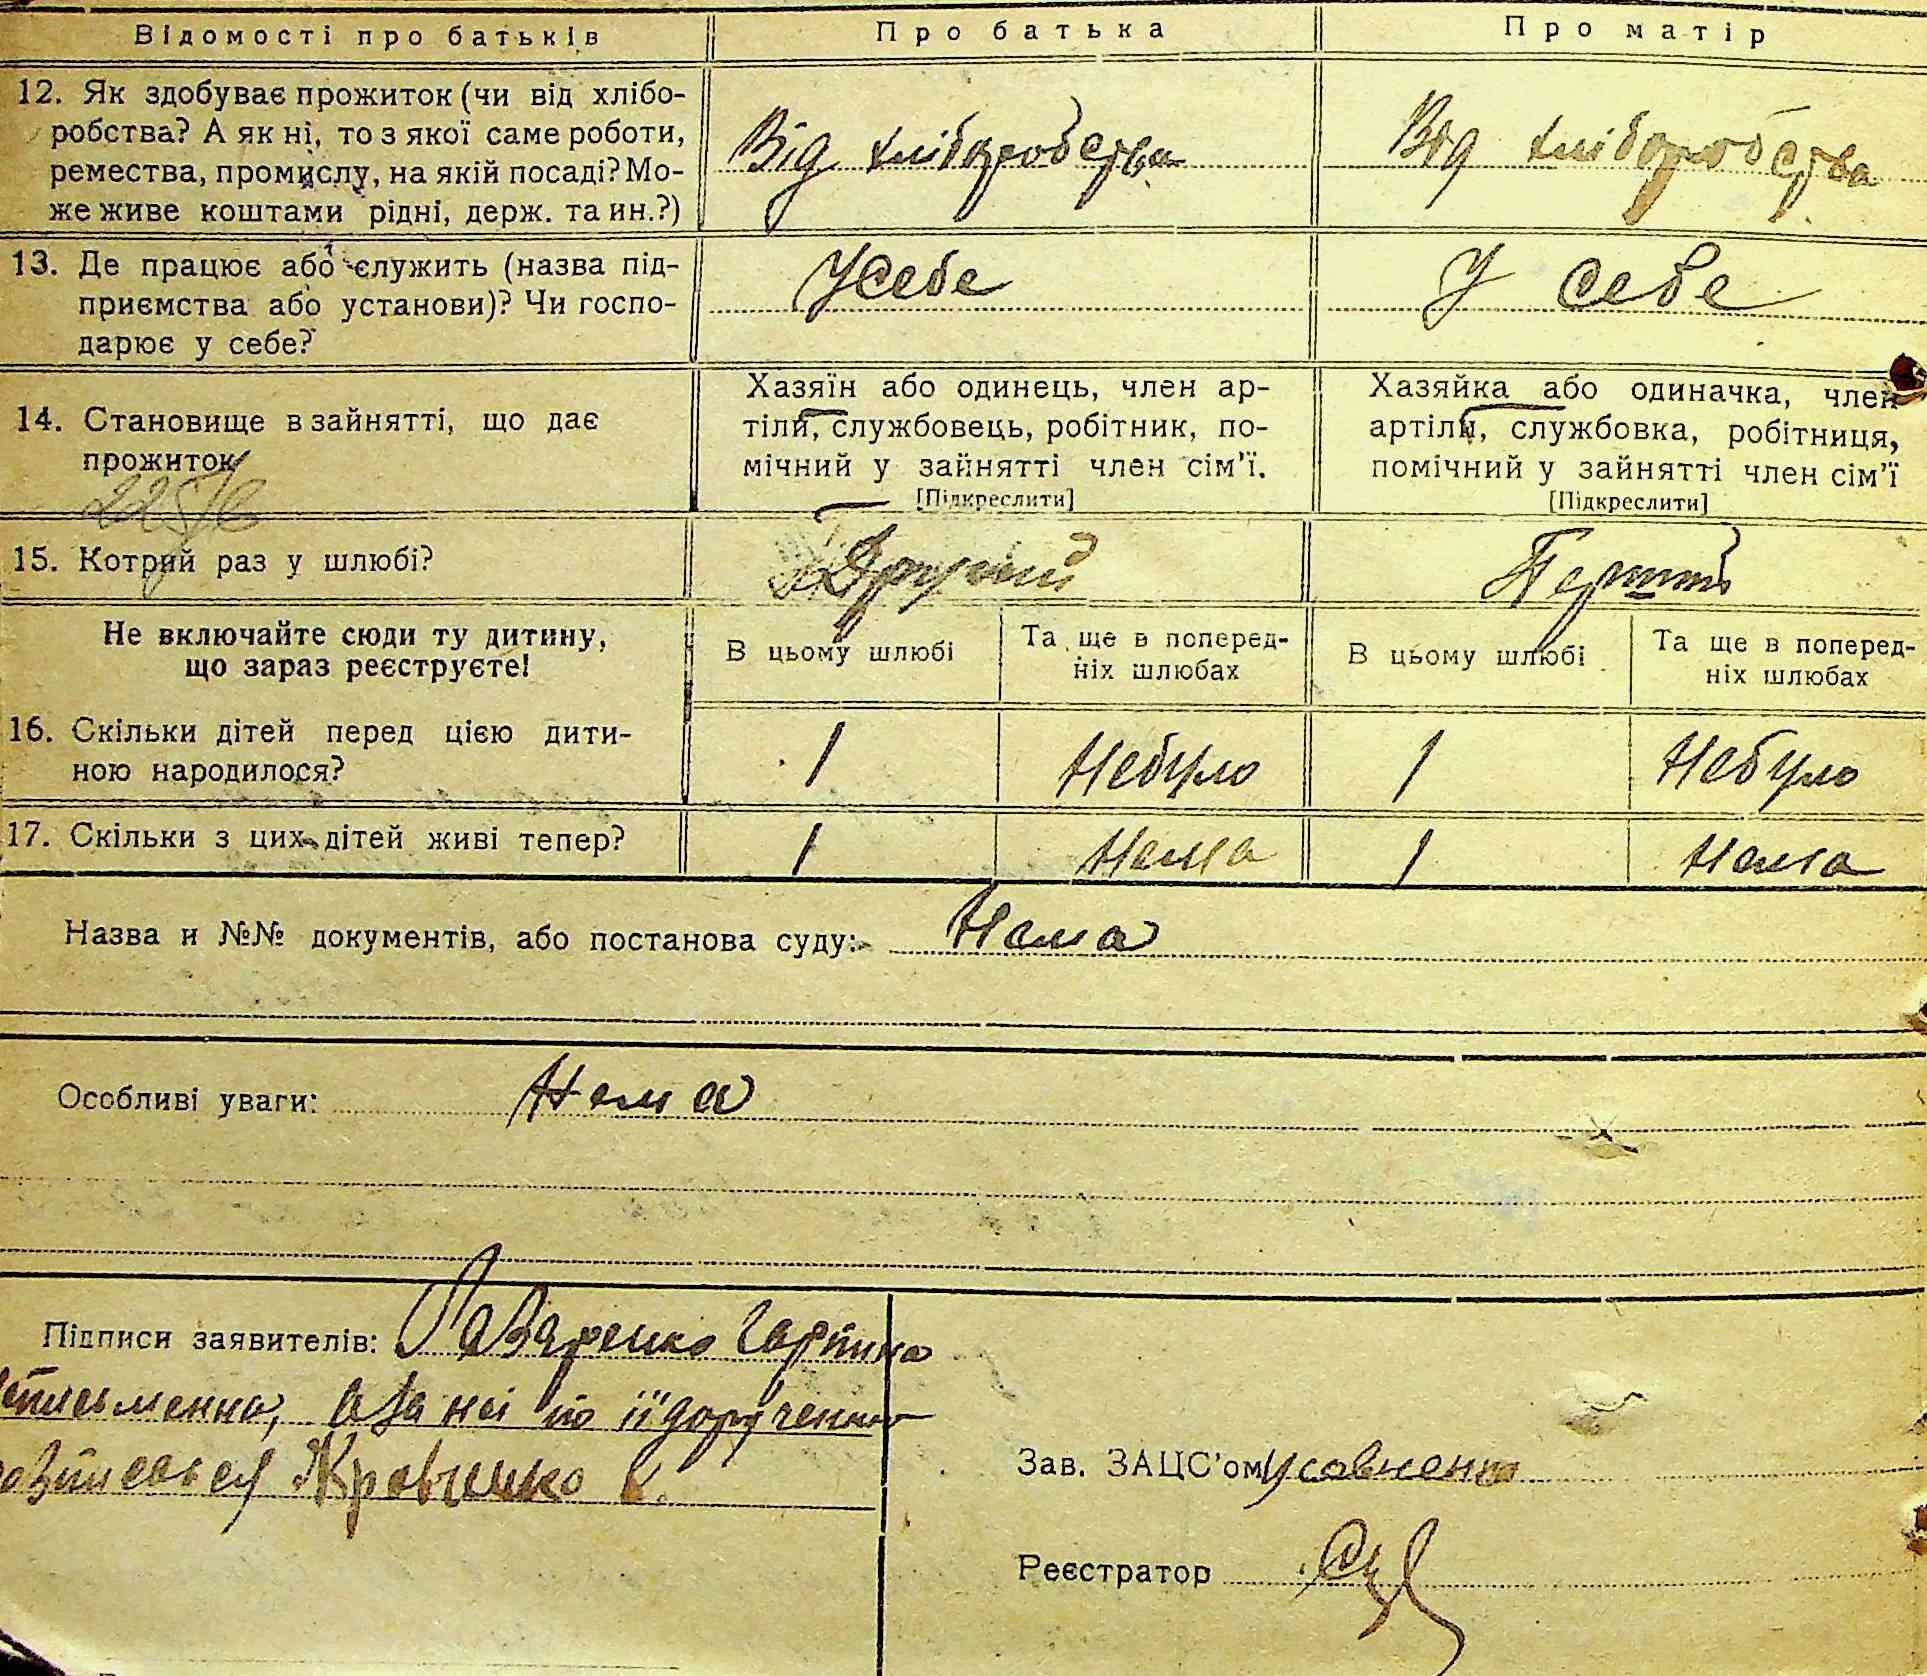 Відомості про батьків Про батька Про матір
12. Як здобуває прожиток (чи від хлібо-
робства? А як ні, то з якої саме роботи,
ремества, промислу, на якій посаді? Мо-
же живе коштами рідні, держ. та ин.?)
Від хліборобства Від хліборобства
13. Де працює або служить (назва під-
приємства або установи)? Чи госпо-
дарює у себе?
Усебе У себе
14. Становище в зайнятті, що дає
прожиток
Хазяїн або одинець, член ар-
тіли, службовець, робітник, по-
мічний у зайнятті член сім'ї.
[Підкреслити]
Хазяйка або одиначка, член
артіли, службовка, робітниця,
помічний у зайнятті член сім'ї
[Підкреслити]
15. Котрий раз у шлюбі? Другий
Не включайте сюди ту дитину,
що зараз реєструєте!
В цьому шлюбі
Та ще в поперед-
ніх шлюбах
В цьому шлюбі
Та ще в поперед-
ніх шлюбах
16. Скільки дітей перед цією дити-
ною народилося?
1 Небуло 1 Небуло
17. Скільки з цих дітей живі тепер? 1 Нема 1 Нема
Назва и №№ документів, або постанова суду: Нема
Особливі уваги: Нема
Підписи заявителів:
а за неї по її дорученню
Кравченко К.
Зав. ЗАЦС'ом
Реєстратор